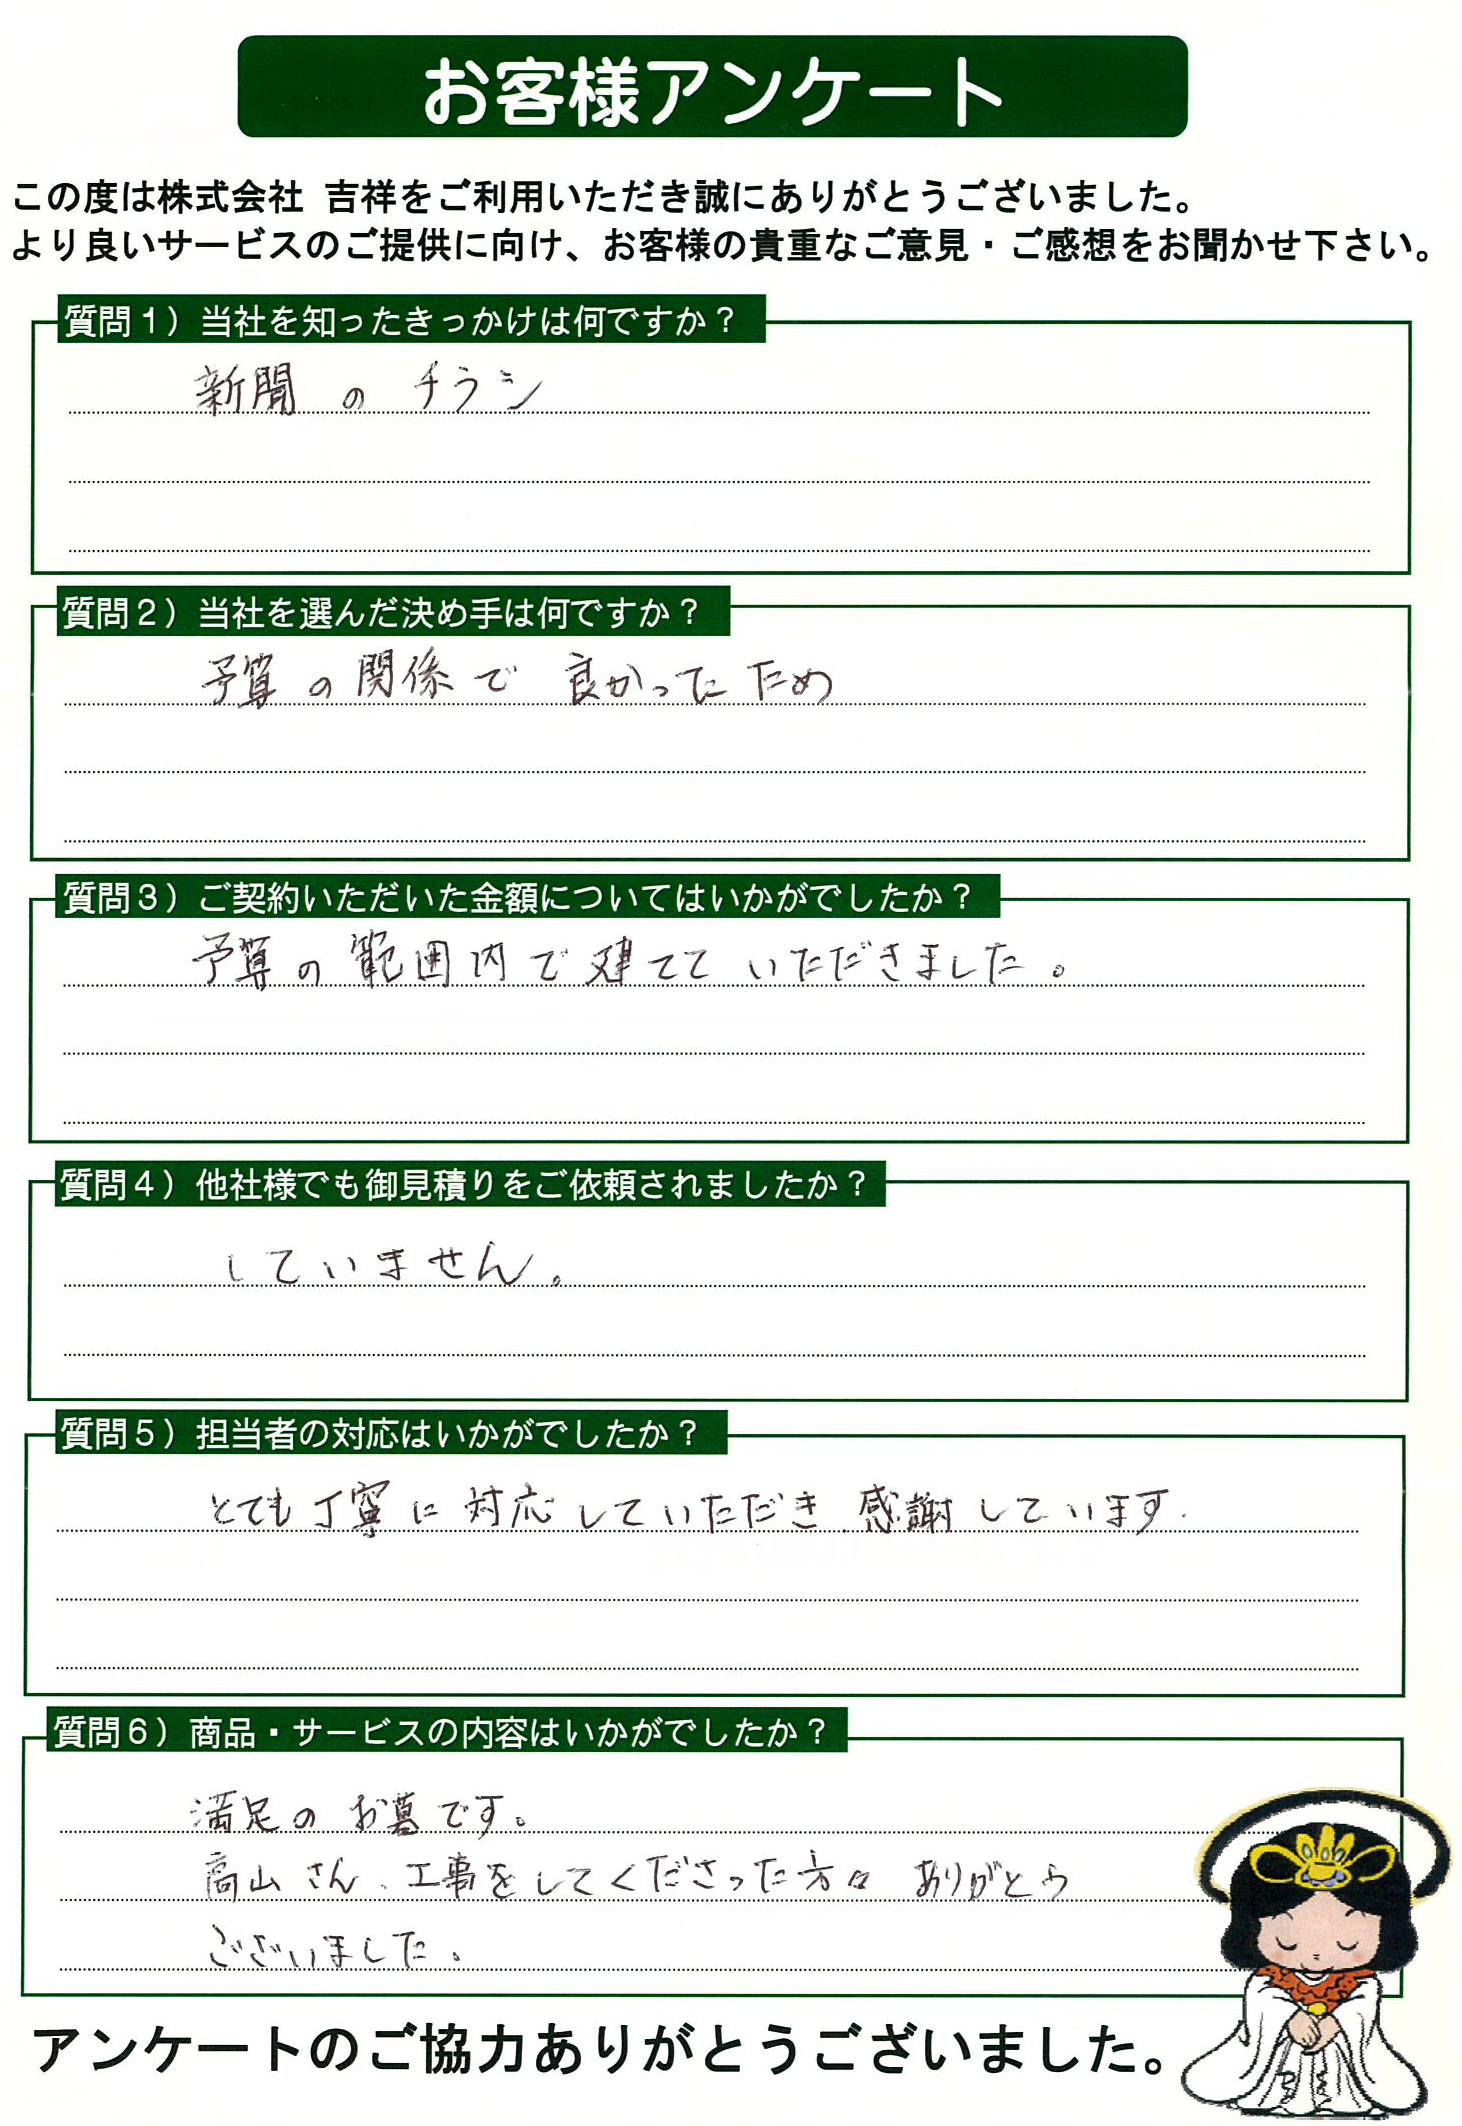 お客様アンケート
この度は株式会社 吉祥をご利用いただき誠にありがとうございました。
より良いサービスのご提供に向け、お客様の貴重なご意見・ご感想をお聞かせ下さい。
質問1）当社を知ったきっかけは何ですか？
新聞のチラシ
質問2）当社を選んだ決め手は何ですか？
予算の関係で良かったため
質問3）ご契約いただいた金額についてはいかがでしたか？
予算の範囲内で建てていただきました。
質問4）他社様でも御見積りをご依頼されましたか？
していません。
質問5）担当者の対応はいかがでしたか？
とても丁寧に対応していただき、感謝しています.
質問6）商品・サービスの内容はいかがでしたか？
満足のお墓です。
高山さん、工事をしてくださった方々ありがとう
ございました。
アンケートのご協力ありがとうございました。